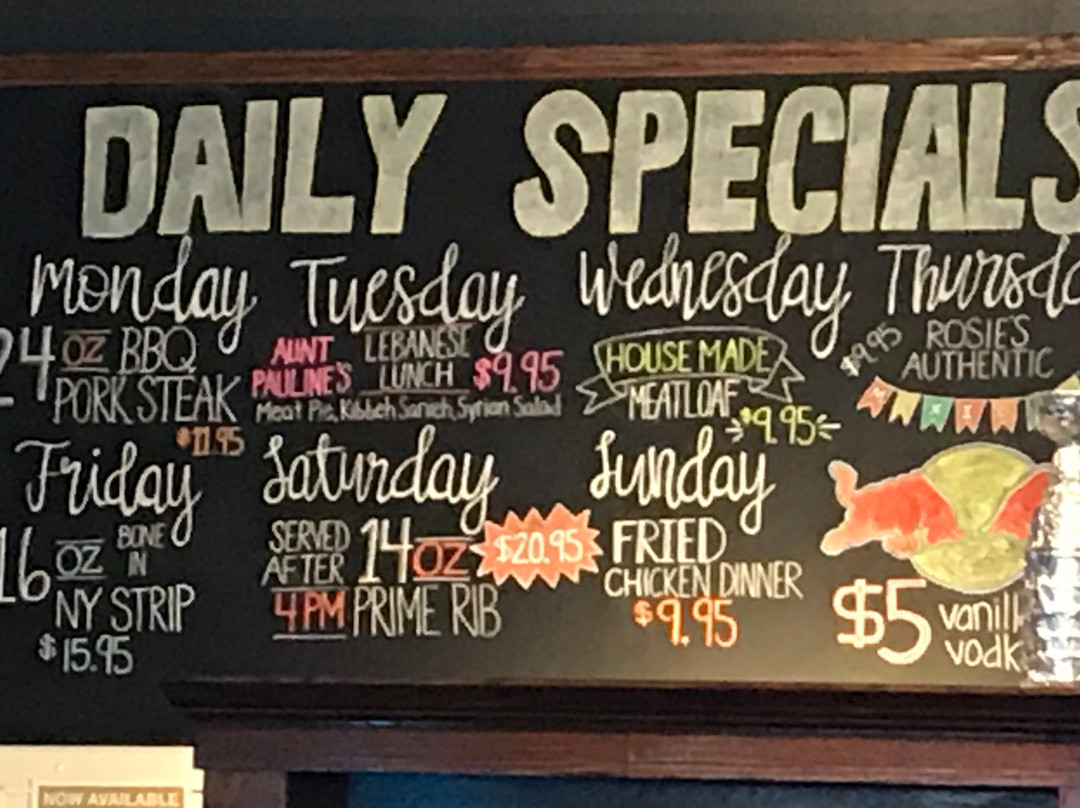 DAILY SPECIALS
Monday
24 OZ BBQ
PORK STEAK
$11.95
Tuesday
AUNT PAULINE'S
LEBANESE LUNCH
$9.95
Meat Pie, Kibbeh Sanieh, Syrian Salad
Wednesday
HOUSE MADE
MEATLOAF
$9.95
Thursda
$9.95
ROSIE'S
AUTHENTIC
Friday
16 OZ BONE IN
NY STRIP
$15.95
Saturday
SERVED AFTER 4PM
14 OZ
PRIME RIB
$20.95
Sunday
FRIED
CHICKEN DINNER
$9.95
$5 vanill
vodk
NOW AVAILABLE